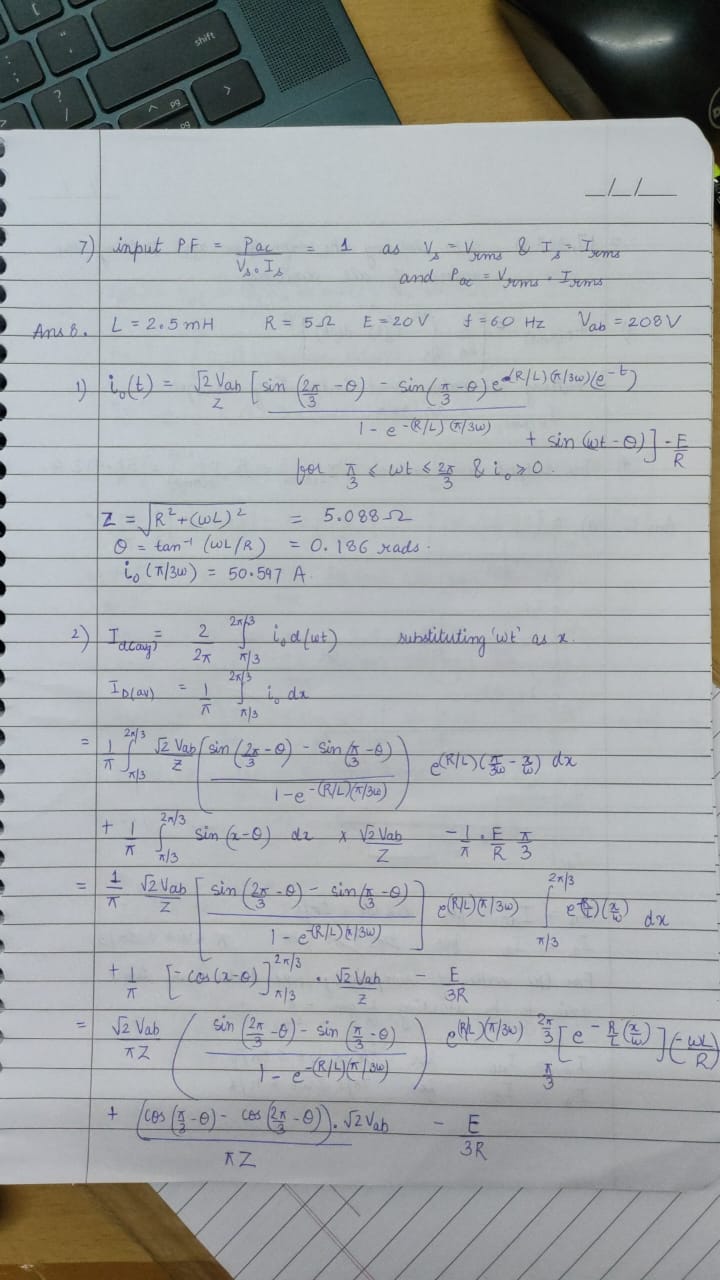 shift
pg
pg
_/_/_
7) input PF = Pac / Vs·Is = 1 as Vs = Vrms & Is = Irms
and Pac = Vrms · Irms
Ans 8. L = 2.5mH R = 5Ω E = 20V f = 60 Hz Vab = 208V
1) io(t) = √2 Vab / Z [ sin(2π/3 - θ) - sin(π/3 - θ) e^(R/L)(π/3ω)(e^-t) / 1 - e^-(R/L)(π/3ω)
+ sin(ωt - θ) ] - E/R
for π/3 ≤ ωt ≤ 2π/3 & io ≥ 0.
Z = √R² + (ωL)² = 5.088Ω
θ = tan⁻¹ (ωL/R) = 0.186 rads.
io (π/3ω) = 50.597 A.
2) Id(avg) = 2/2π ∫_π/3^2π/3 io d(ωt) substituting 'ωt' as x.
ID(av) = 1/π ∫_π/3^2π/3 io dx
= 1/π ∫_π/3^2π/3 √2 Vab / Z ( sin(2π/3 - θ) - sin(π/3 - θ) / 1 - e^-(R/L)(π/3ω) ) e^(R/L)(π/3ω - x/ω) dx
+ 1/π ∫_π/3^2π/3 sin(x-θ) dx x √2 Vab / Z - 1/π · E/R π/3
= 1/π √2 Vab / Z [ sin(2π/3 - θ) - sin(π/3 - θ) / 1 - e^-(R/L)(π/3ω) ] e^(R/L)(π/3ω) ∫_π/3^2π/3 e^(x/ω) dx
+ 1/π [-cos(x-θ)]_π/3^2π/3 · √2 Vab / Z - E/3R
= √2 Vab / πZ ( sin(2π/3 - θ) - sin(π/3 - θ) / 1 - e^-(R/L)(π/3ω) ) e^(R/L)(π/3ω) 2π/3 π/3 [e^-R/L(x/ω)] (-ωL/R)
+ (cos(π/3 - θ) - cos(2π/3 - θ)) · √2 Vab / πZ - E/3R